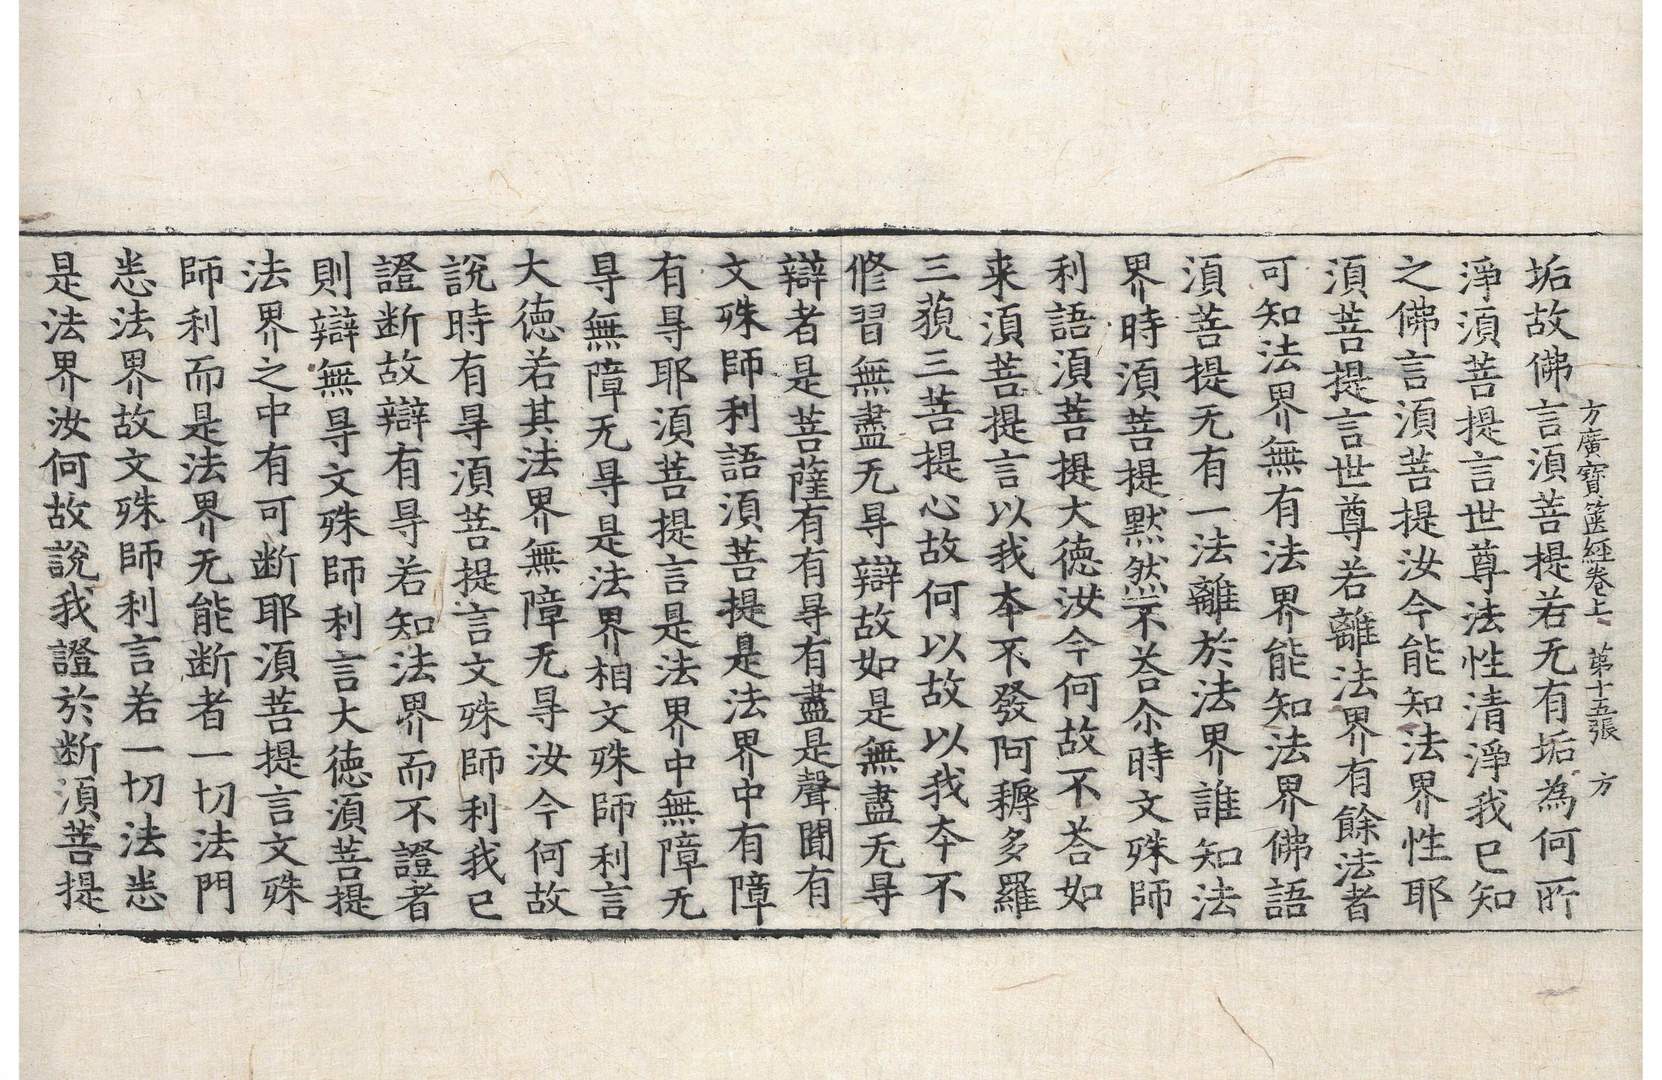 方廣寶篋經卷上 第十五張 方
垢故佛言湏菩提若无有垢為何所
淨湏菩提言世尊法性清淨我已知
之佛言湏菩提汝今能知法界性耶
湏菩提言世尊若離法界有餘法者
可知法界無有法界能知法界佛語
湏菩提无有一法離於法界誰知法
界時湏菩提默然不荅尒時文殊師
利語湏菩提大徳汝今何故不荅如
来湏菩提言以我夲不發阿耨多羅
三藐三菩提心故何以故以我夲不
修習無盡无㝵辯故如是無盡无㝵
辯者是菩薩有有㝵有盡是聲聞有
文殊師利語湏菩提是法界中有障
有㝵耶湏菩提言是法界中無障无
㝵無障无㝵是法界相文殊師利言
大徳若其法界無障无㝵汝今何故
說時有㝵湏菩提言文殊師利我已
證断故辯有㝵若知法界而不證者
則辯無㝵文殊師利言大徳湏菩提
法界之中有可断耶湏菩提言文殊
師利而是法界无能断者一切法門
悉法界故文殊師利言若一切法悉
是法界汝何故說我證於断湏菩提